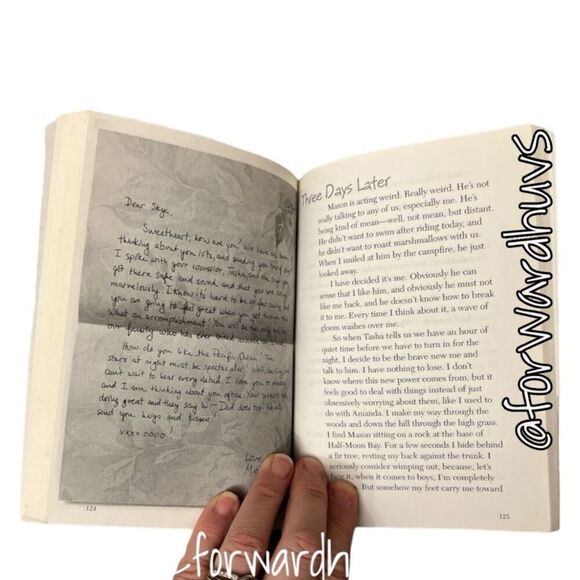 Dear Skye,
Sweetheart, how are you? We have all been
thinking about you lots, and sending you
I spoke with your counselor, Tasha, and she says you
got there safe and sound and that you are doing
marvelously. I know it's hard to be so far away but
you are going to feel great when you get through
What an accomplishment. You will be the only
our family who has ever
How do you like the Pacific Ocean? The
stars at night must be spectacular! Well, darling
can't wait to hear every detail. I love you
and I am thinking about you often. Your sisters are
doing great and they say hi—Dad does too. We all
send you hugs and kisses.
xxxx oooo
Love,
124
Three Days Later
Mason is acting weird. Really weird. He's not
really talking to any of us, especially me. He's
being kind of mean—well, not mean, but distant.
He didn't want to swim after riding today, and
he didn't want to roast marshmallows with us.
When I smiled at him by the campfire, he just
looked away.
I have decided it's me. Obviously he can
sense that I like him, and obviously he must not
like me back, and he doesn't know how to break
it to me. Every time I think about it, a wave of
gloom washes over me.
So when Tasha tells us we have an hour of
quiet time before we have to turn in for the
night, I decide to be the brave new me and
talk to him. I have nothing to lose. I don't
know where this new power comes from, but it
feels good to deal with things instead of just
obsessively worrying about them, like I used to
do with Amanda. I make my way through the
woods and down the hill through the high grass.
I find Mason sitting on a rock at the base of
Half-Moon Bay. For a few seconds I hide behind
a fir tree, resting my back against the trunk. I
seriously consider wimping out, because, let's
face it, when it comes to boys, I'm completely
But somehow my feet carry me toward
125
@forwardhuvs
forwardh